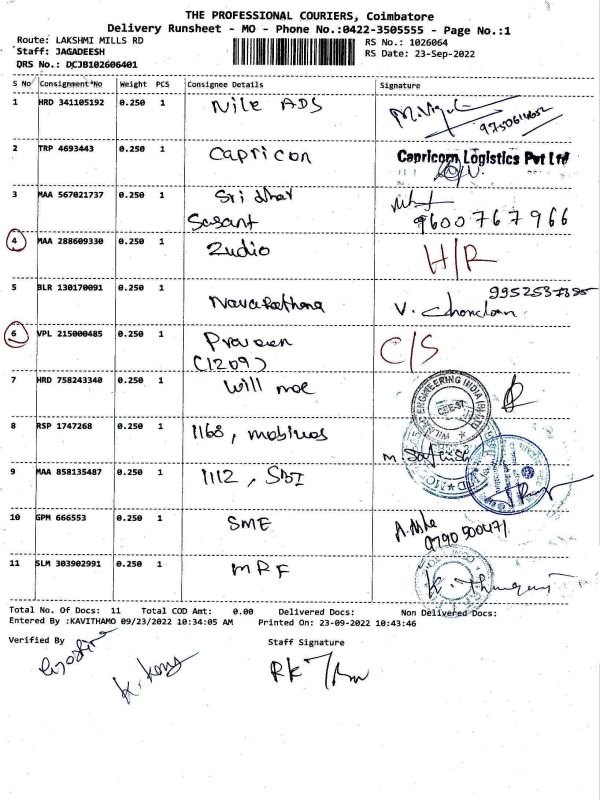 THE PROFESSIONAL COURIERS, Coimbatore
Delivery Runsheet - MO - Phone No.:0422-3505555 - Page No.:1
Route: LAKSHMI MILLS RD RS No.: 1026064
Staff: JAGADEESH RS Date: 23-Sep-2022
DRS No.: DCJB102606401
S No Consignment No Weight PCS Consignee Details Signature
1 HRD 341105192 0.250 1 Nile ADS
9750614652
2 TRP 4693443 0.250 1 Capricon Capricorn Logistics Pvt Ltd
3 MAA 567021737 0.250 1 Sri dhar
Sasant 9600767966
4 MAA 288609330 0.250 1 Zudio H/R
5 BLR 130170091 0.250 1 Navarathana V. Chandan
6 VPL 215000485 0.250 1 Praveen C/S
(1209)
7 HRD 758243340 0.250 1 Will moe ENGINEERING INDIA
8 RSP 1747268 0.250 1 1168, mobiuos M. Sathish
9 MAA 858135487 0.250 1 1112, SBI
10 GPM 666553 0.250 1 SME
9790500471
11 SLM 303902991 0.250 1 MRF
Total No. Of Docs: 11 Total COD Amt: 0.00 Delivered Docs: Non Delivered Docs:
Entered By :KAVITHAMO 09/23/2022 10:34:05 AM Printed On: 23-09-2022 10:43:46
Verified By Staff Signature